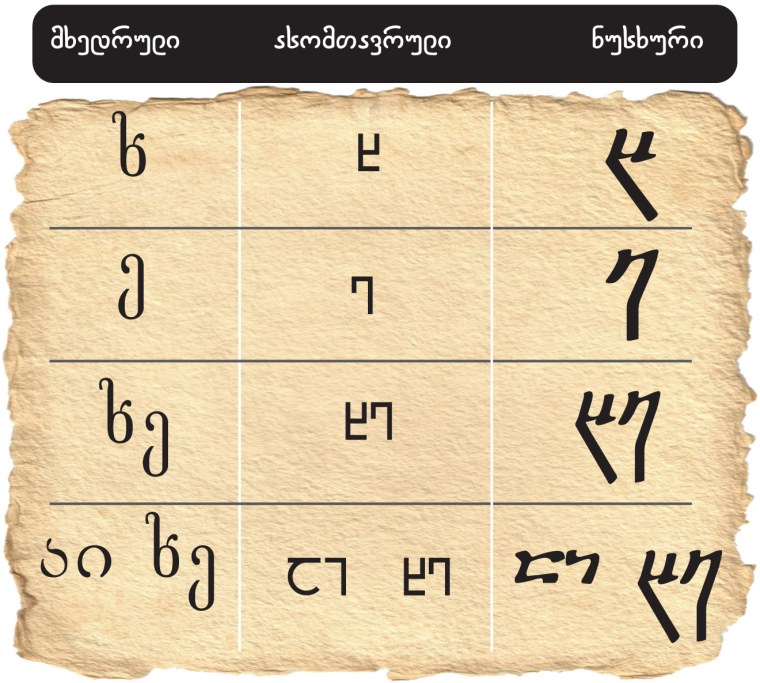 მხედრული ასომთავრული ნუსხური
ხ Ⴞ ⴞ
ე Ⴄ ⴄ
ხე ႾႤ ⴞⴄ
აი ხე ႠႨ ႾႤ ⴀⴈ ⴞⴄ